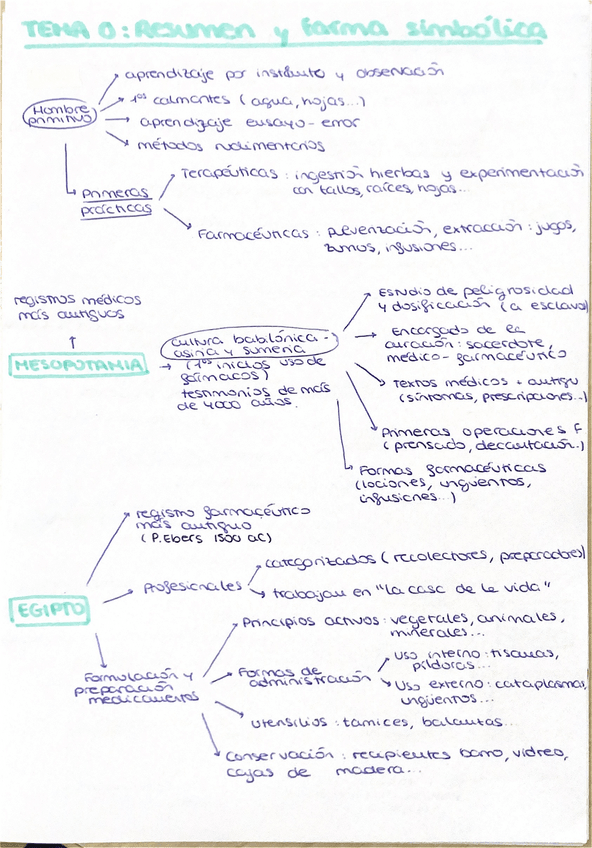 TEMA 0: Resumen y forma simbólica
Hombre
primitivo
aprendizaje por instinto y observación
1os calmantes (agua, hojas...)
aprendizaje ensayo-error
métodos rudimentarios
Primeras
prácticas
Terapéuticas: ingestión hierbas y experimentación
con tallos, raíces, hojas...
Farmacéuticas: pulverización, extracción: jugos,
zumos, infusiones...
registros médicos
más antiguos
MESOPOTAMIA
cultura babilónica-
asiria y sumeria
(1os inicios uso de
fármacos)
testimonios de más
de 4000 años.
Estudio de peligrosidad
y dosificación (a esclavo)
Encargado de la
curación: sacerdote,
médico-farmacéutico
Textos médicos + antigu
(síntomas, prescripciones...)
Primeras operaciones F
(prensado, decantación..)
Formas farmacéuticas
(lociones, ungüentos,
infusiones...)
EGIPTO
registro farmacéutico
más antiguo
(P.Ebers 1500 aC)
Profesionales
categorizados (recolectores, preparadores)
trabajan en "la casa de la vida"
Formulación y
preparación
medicamentos
Principios activos: vegetales, animales,
minerales...
Formas de
administración
Uso interno: tisanas,
píldoras...
Uso externo: cataplasma,
ungüentos...
Utensilios: tamices, balanzas...
Conservación: recipientes barro, vidreo,
cajas de madera...